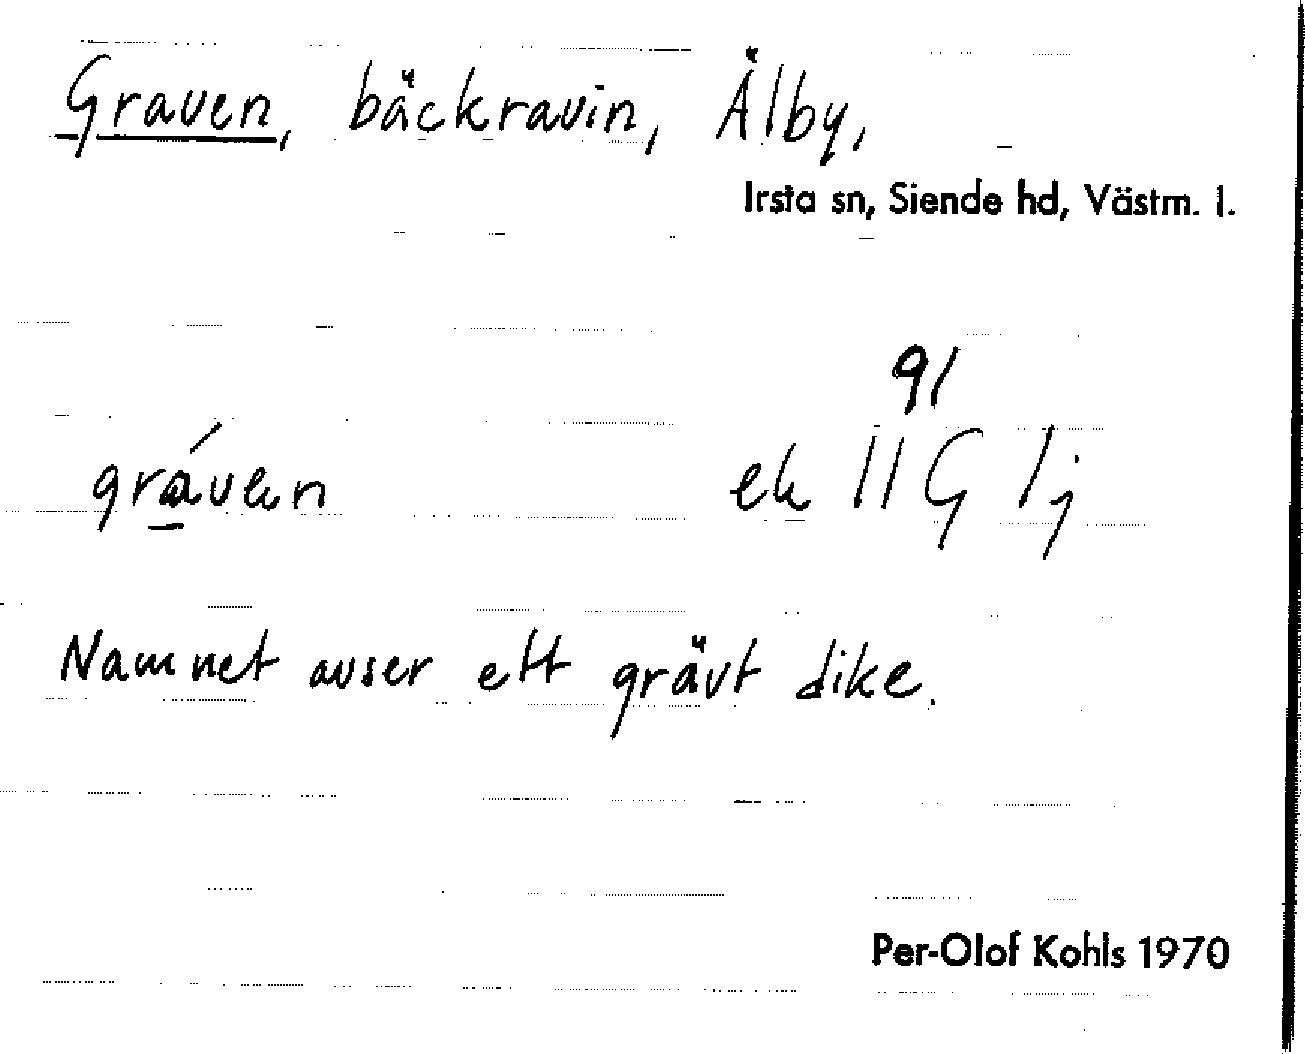 Graven, bäckravin, Älby,
Irsta sn, Siende hd, Västm. l.
91
gráven ek 11G 1j
Namnet avser ett grävt dike.
Per-Olof Kohls 1970